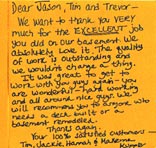 Dear Jason, Tim and Trevor -
We want to thank you VERY
much for the EXCELLENT job
you did on our basement. We
absolutely love it. The quality
of work is outstanding and
we wouldn't change a thing.
It was great to get to
work with you guys again - you
are wonderful - hard working
and all around nice guys. We
will recommend you to anyone who
needs a deck built or a
basement remodeled.
Thanks again,
Your 100% satisfied customers -
Tim, Jackie, Hannah &